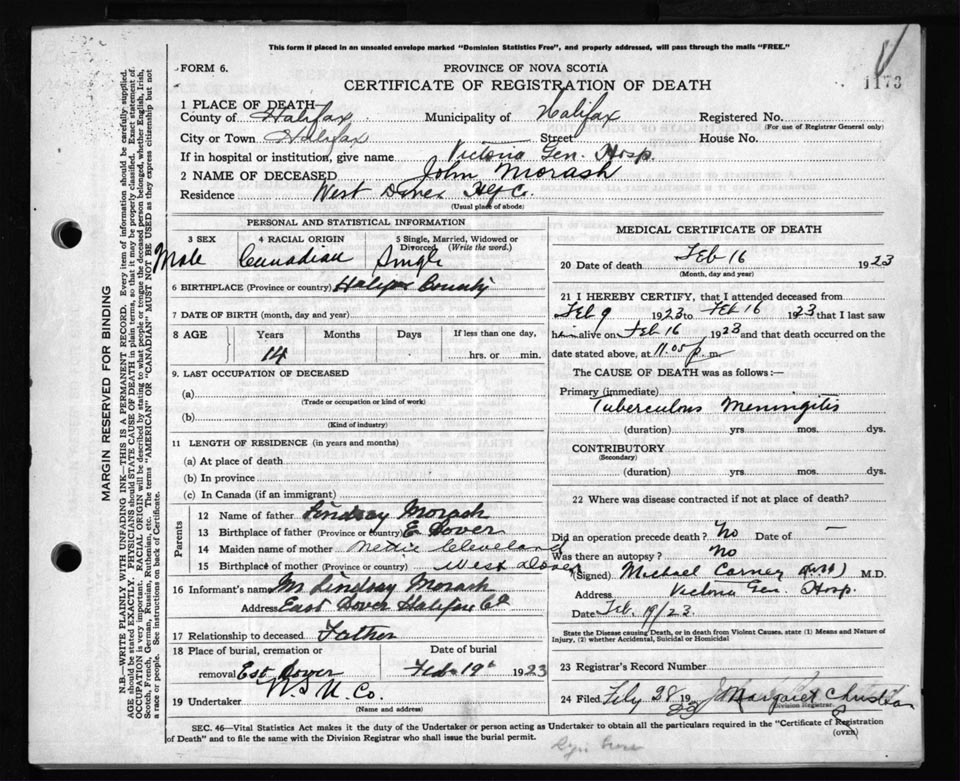 This form if placed in an unsealed envelope marked "Dominion Statistics Free", and properly addressed, will pass through the mails "FREE."
FORM 6.
PROVINCE OF NOVA SCOTIA
1173
CERTIFICATE OF REGISTRATION OF DEATH
1 PLACE OF DEATH—
County of Halifax Municipality of Halifax Registered No.
(For use of Registrar General only)
City or Town Halifax Street House No.
If in hospital or institution, give name Victoria Gen. Hosp.
2 NAME OF DECEASED John Morash
Residence West Dover Hfx Co.
(Usual place of abode)
PERSONAL AND STATISTICAL INFORMATION
3 SEX 4 RACIAL ORIGIN 5 Single, Married, Widowed or Divorced (Write the word.)
Male Canadian Single
6 BIRTHPLACE (Province or country) Halifax County
7 DATE OF BIRTH (month, day and year)
8 AGE Years Months Days If less than one day,
14 hrs. or min.
9. LAST OCCUPATION OF DECEASED
(a)
(Trade or occupation or kind of work)
(b)
(Kind of industry)
11 LENGTH OF RESIDENCE (in years and months)
(a) At place of death
(b) In province
(c) In Canada (if an immigrant)
Parents
12 Name of father Lindsay Morash
13 Birthplace of father (Province or country) E Dover
14 Maiden name of mother Nettie Cleveland
15 Birthplace of mother (Province or country) West Dover
16 Informant's name Mr Lindsay Morash
Address East Dover Halifax Co
17 Relationship to deceased Father
18 Place of burial, cremation or removal Est Dover
Date of burial Feb 19th 1923
19 Undertaker N S U. Co.
(Name and address)
MEDICAL CERTIFICATE OF DEATH
20 Date of death Feb 16 1923
(Month, day and year)
21 I HEREBY CERTIFY, that I attended deceased from
Feb 9 1923 to Feb 16 1923 that I last saw
him alive on Feb 16 1923 and that death occurred on
date stated above, at 11.05 p.m.
The CAUSE OF DEATH was as follows:—
Primary (immediate)
Tuberculous Meningitis
(duration) yrs. mos. dys.
CONTRIBUTORY
(Secondary)
(duration) yrs. mos. dys.
22 Where was disease contracted if not at place of death?
Did an operation precede death? No Date of —
Was there an autopsy? No
(Signed) Michael Carney M.D.
Address Victoria Gen. Hosp.
Date Feb. 19/23
State the Disease causing Death, or in death from Violent Causes, state (1) Means and Nature of Injury, (2) whether Accidental, Suicidal or Homicidal
23 Registrar's Record Number
24 Filed 28 1923 Margaret
Division Registrar.
(OVER)
SEC. 46—Vital Statistics Act makes it the duty of the Undertaker or person acting as Undertaker to obtain all the particulars required in the "Certificate of Registration
of Death" and to file the same with the Division Registrar who shall issue the burial permit.
MARGIN RESERVED FOR BINDING
N.B.—WRITE PLAINLY WITH UNFADING INK—THIS IS A PERMANENT RECORD. Every item of information should be carefully supplied.
AGE should be stated EXACTLY. PHYSICIANS should STATE CAUSE OF DEATH in plain terms, so that it may be properly classified. Exact statement of
OCCUPATION is very important. RACIAL ORIGIN will be described by stating to what people or tongue the deceased person belonged, whether English, Irish,
Scotch, French, German, Russian, Ruthenian, etc. The terms "AMERICAN" or "CANADIAN" MUST NOT BE USED as they express citizenship but not
a race or people. See instructions on back of Certificate.